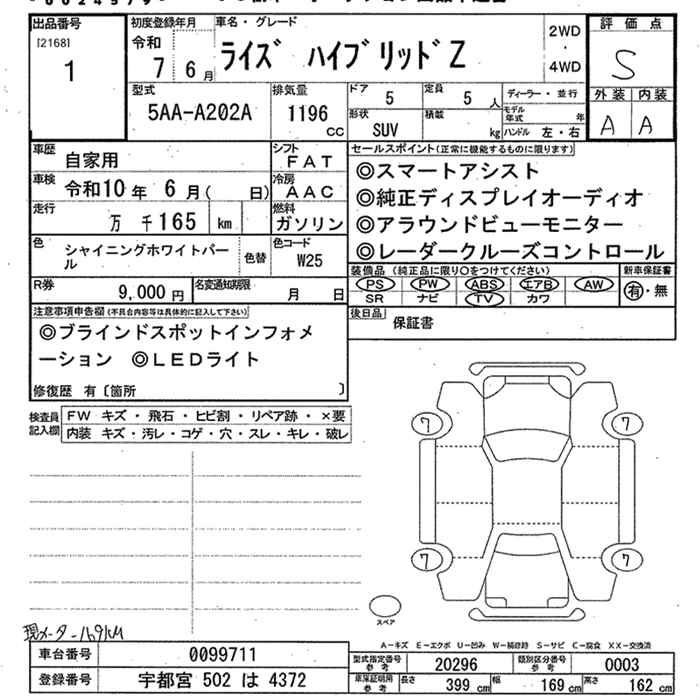 出品番号
[2168]
1
初度登録年月
令和
7 6 月
車名・グレード
ライズ ハイブリッドZ
2WD
・
4WD
評価点
S
外装 内装
A A
型式
5AA-A202A
排気量
1196
CC
ドア
5
定員
5 人
形状
SUV
積載
kg
ディーラー・並行
モデル年式 年
ハンドル 左・右
車歴
自家用
シフト
FAT
車検
令和10 年 6 月( 日)
冷房
AAC
走行
万 千165 km
燃料
ガソリン
色
シャイニングホワイトパール
色替
色コード
W25
R券
9,000 円
名変通知期限
月 日
セールスポイント(正常に機能するものに限ります)
◎スマートアシスト
◎純正ディスプレイオーディオ
◎アラウンドビューモニター
◎レーダークルーズコントロール
装備品 (純正品に限り○をつけてください)
PS PW ABS エアB AW
SR ナビ TV カワ
新車保証書
有・無
後日品
保証書
注意事項申告欄(不具合内容等は具体的に記入して下さい)
◎ブラインドスポットインフォメ
ーション ◎LEDライト
修復歴 有〔箇所 〕
検査員
記入欄
FW キズ・飛石・ヒビ割・リペア跡・×要
内装 キズ・汚レ・コゲ・穴・スレ・キレ・破レ
7
7
7
7
スペア
現メーター169KM
A-キズ E-エクボ U-凹み W-補修跡 S-サビ C-腐食 XX-交換済
車台番号
0099711
登録番号
宇都宮 502 は 4372
型式指定番号
参考
20296
類別区分番号
参考
0003
車庫証明用
参考
長さ
399 cm
幅
169 cm
高さ
162 cm